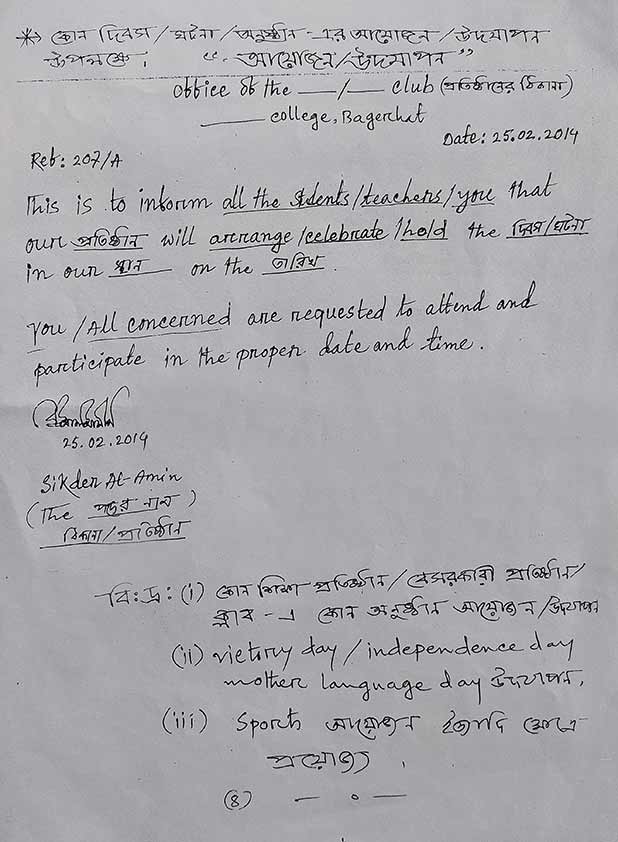 * কোন দিবস/ঘটনা/অনুষ্ঠান-এর আয়োজন/উদযাপন
উপলক্ষে। "- আয়োজন/উদযাপন"
Office of the —/— club (প্রতিষ্ঠানের ঠিকানা)
college, Bagerhat
Date: 25.02.2014
Ref: 207/A
This is to inform all the stdents/teachers/you that
our প্রতিষ্ঠান will arrange/celebrate/hold the দিবস/ঘটনা
in our স্থান on the তারিখ.
You/All concerned are requested to attend and
participate in the proper date and time.
25.02.2014
Sikder Al-Amin
(The পদের নাম)
ঠিকানা/প্রতিষ্ঠান
বি:দ্র: (i) কোন শিক্ষা প্রতিষ্ঠান/বেসরকারী প্রতিষ্ঠান/
ক্লাব-এ কোন অনুষ্ঠান আয়োজন/উদযাপন
(ii) victory day/independence day
mother language day উদযাপন,
(iii) Sports আয়োজন ইত্যাদি ক্ষেত্রে
প্রযোজ্য।
(৪) — ० —